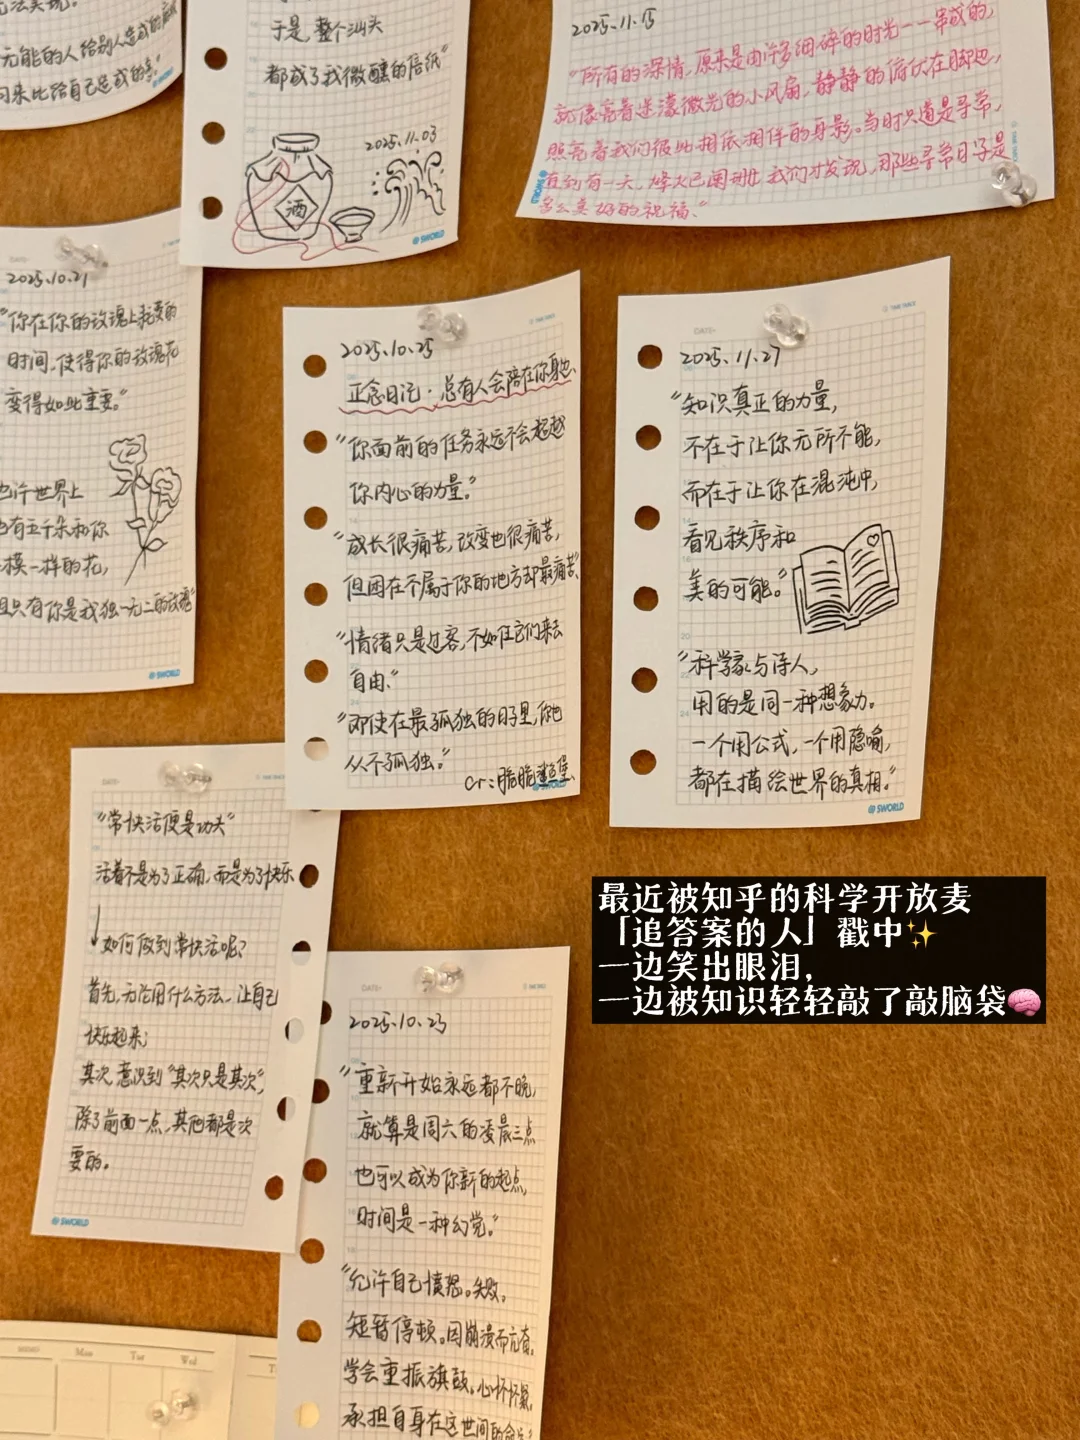 无能的人给别人造成的麻烦
于是,整个汕头
都成了我微醺的信纸"
2025.11.03
酒
@ SWORLD
2025.11.15
"所有的深情,原来是由许多细碎的时光一一串成的,
就像亮着迷濛微光的小风扇,静静的俯伏在脚边,
照亮着我们彼此相依相伴的身影。当时只道是寻常,
直到有一天,烽火已阑珊 我们才发现,那些寻常日子是
多么美好的祝福。"
2025.10.21
"你在你的玫瑰上耗费的
时间,使得你的玫瑰花
变得如此重要。"
也许世界上
也有五千朵和你
一模一样的花,
但只有你是我独一无二的玫瑰"
@ SWORLD
2025.10.25
正念日记·总有人会陪在你身边、
"你面前的任务永远不会超越
你内心的力量。"
"成长很痛苦,改变也很痛苦,
但困在不属于你的地方却最痛苦"
"情绪只是过客,不如任它们来去
自由、"
"即使在最孤独的日子里,你也
从不孤独。"
cr:脆脆鲨鱼堡
DATE·
2025.11.27
"知识真正的力量,
不在于让你无所不能,
而在于让你在混沌中,
看见秩序和
美的可能。"
"科学家与诗人,
用的是同一种想象力。
一个用公式,一个用隐喻,
都在描绘世界的真相。"
@ SWORLD
DATE·
"常快活便是功夫"
活着不是为了正确,而是为了快乐
如何做到常快活呢?
首先,无论用什么方法、让自己
快乐起来;
其次,意识到"其次只是其次",
除了前面一点,其他都是次
要的。
@ SWORLD
最近被知乎的科学开放麦
「追答案的人」戳中✨
一边笑出眼泪,
一边被知识轻轻敲了敲脑袋🧠
DATE·
2025.10.23
"重新开始永远都不晚,
就算是周六的凌晨三点
也可以成为你新的起点,
时间是一种幻觉。"
"允许自己愤怒。失败。
短暂停顿。因崩溃而亢奋。
学会重振旗鼓。心怀怀疑,
承担自身在这世间的命运"
Mon
Tue
Wed